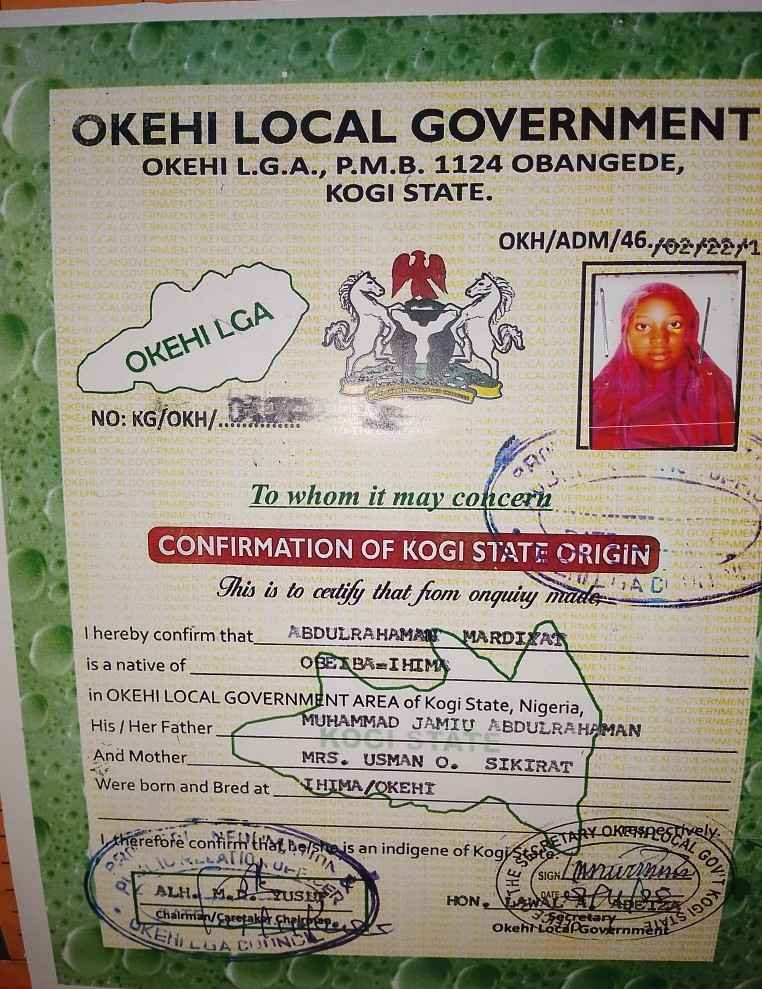 OKEHI LOCAL GOVERNMENT
OKEHI L.G.A., P.M.B. 1124 OBANGEDE,
KOGI STATE.
OKH/ADM/46./02/22/1
OKEHI LGA
NO: KG/OKH/
To whom it may concern
CONFIRMATION OF KOGI STATE ORIGIN
This is to certify that from onquiry made,
I hereby confirm that ABDULRAHAMAN MARDIYAT
is a native of OBEIBA=IHIMA
in OKEHI LOCAL GOVERNMENT AREA of Kogi State, Nigeria,
His / Her Father MUHAMMAD JAMIU ABDULRAHAMAN
KOGI STATE
And Mother MRS. USMAN O. SIKIRAT
Were born and Bred at IHIMA/OKEHI
respectively.
I, therefore confirm that he/she is an indigene of Kogi State.
PUBLIC RELATION OFFICER
OKEHI LGA COUNCIL
ALH. M.D. YUSUF
Chairman/Caretaker Chairman
THE SECRETARY OKEHI LOCAL GOV'T KOGI STATE
SIGN
DATE
HON. LAWAL A. ADEIZA
Secretary
Okehi Local Government